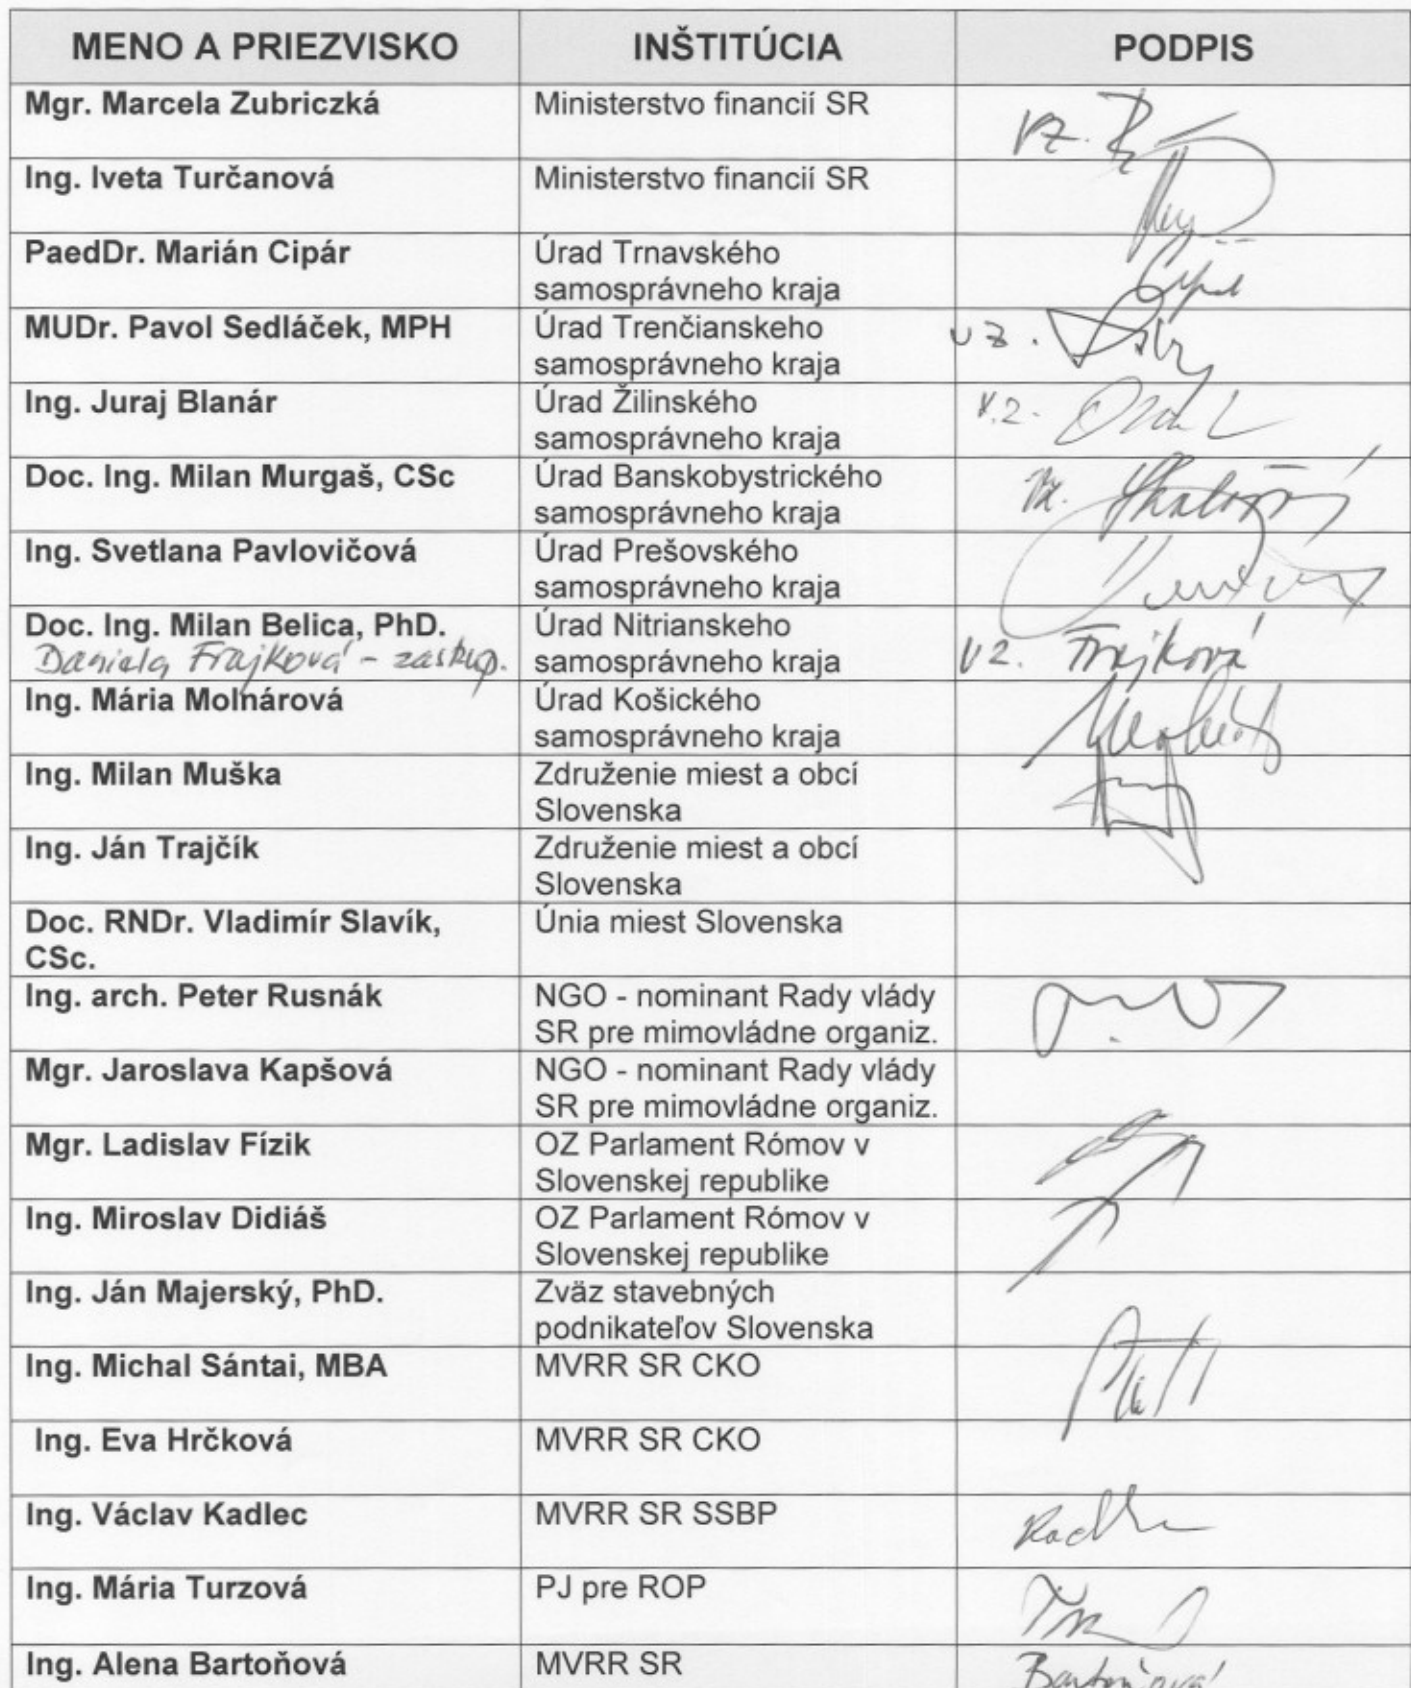 MENO A PRIEZVISKO INŠTITÚCIA PODPIS
Mgr. Marcela Zubriczká Ministerstvo financií SR vz.
Ing. Iveta Turčanová Ministerstvo financií SR
PaedDr. Marián Cipár Úrad Trnavského
samosprávneho kraja
MUDr. Pavol Sedláček, MPH Úrad Trenčianskeho vz.
samosprávneho kraja
Ing. Juraj Blanár Úrad Žilinského v.z.
samosprávneho kraja
Doc. Ing. Milan Murgaš, CSc Úrad Banskobystrického vz.
samosprávneho kraja
Ing. Svetlana Pavlovičová Úrad Prešovského
samosprávneho kraja
Doc. Ing. Milan Belica, PhD. Úrad Nitrianskeho
Daniela Frajková - zastup. samosprávneho kraja vz. Frajková
Ing. Mária Molnárová Úrad Košického
samosprávneho kraja
Ing. Milan Muška Združenie miest a obcí
Slovenska
Ing. Ján Trajčík Združenie miest a obcí
Slovenska
Doc. RNDr. Vladimír Slavík, Únia miest Slovenska
CSc.
Ing. arch. Peter Rusnák NGO - nominant Rady vlády
SR pre mimovládne organiz.
Mgr. Jaroslava Kapšová NGO - nominant Rady vlády
SR pre mimovládne organiz.
Mgr. Ladislav Fízik OZ Parlament Rómov v
Slovenskej republike
Ing. Miroslav Didiáš OZ Parlament Rómov v
Slovenskej republike
Ing. Ján Majerský, PhD. Zväz stavebných
podnikateľov Slovenska
Ing. Michal Sántai, MBA MVRR SR CKO
Ing. Eva Hrčková MVRR SR CKO
Ing. Václav Kadlec MVRR SR SSBP
Ing. Mária Turzová PJ pre ROP
Ing. Alena Bartoňová MVRR SR Bartoňová